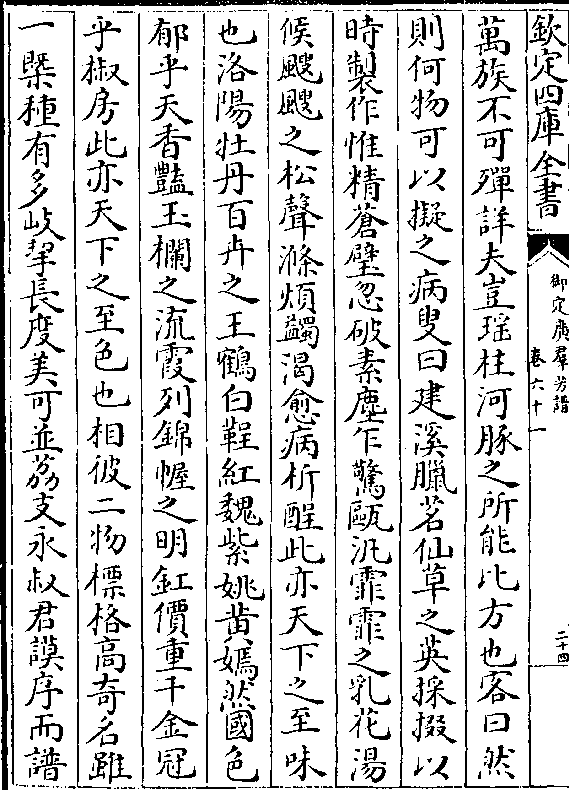 欽定四庫全書
御定廣羣芳譜
卷六十一
二十四
萬族不可殫詳夫豈瑶柱河豚之所能比方也客曰然
則何物可以擬之病叟曰建溪臘茗仙草之英採掇以
時製作惟精蒼璧忽破素塵乍驚甌汎霏霏之乳花湯
候颼颼之松聲滌煩蠲渴愈病析酲此亦天下之至味
也洛陽牡丹百卉之王鶴白鞓紅魏紫姚黄嫣然國色
郁乎天香豔玉欄之流霞列錦幄之明釭價重千金冠
乎椒房此亦天下之至色也相彼二物標格高奇名雖
一槩種有多岐挈長度美可並荔支永叔君謨序而譜